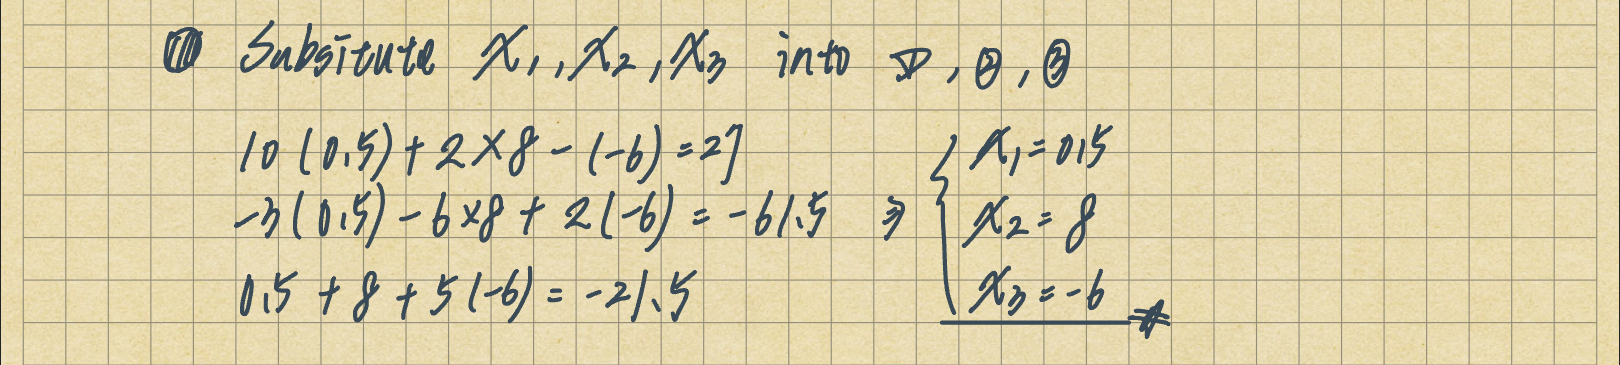 ⑪ Subsitute X₁, X₂, X₃ into ①, ②, ③
10(0.5) + 2×8 - (-6) = 27
-3(0.5) - 6×8 + 2(-6) = -61.5 ⇒
0.5 + 8 + 5(-6) = -21.5
{ X₁ = 0.5
X₂ = 8
X₃ = -6 #